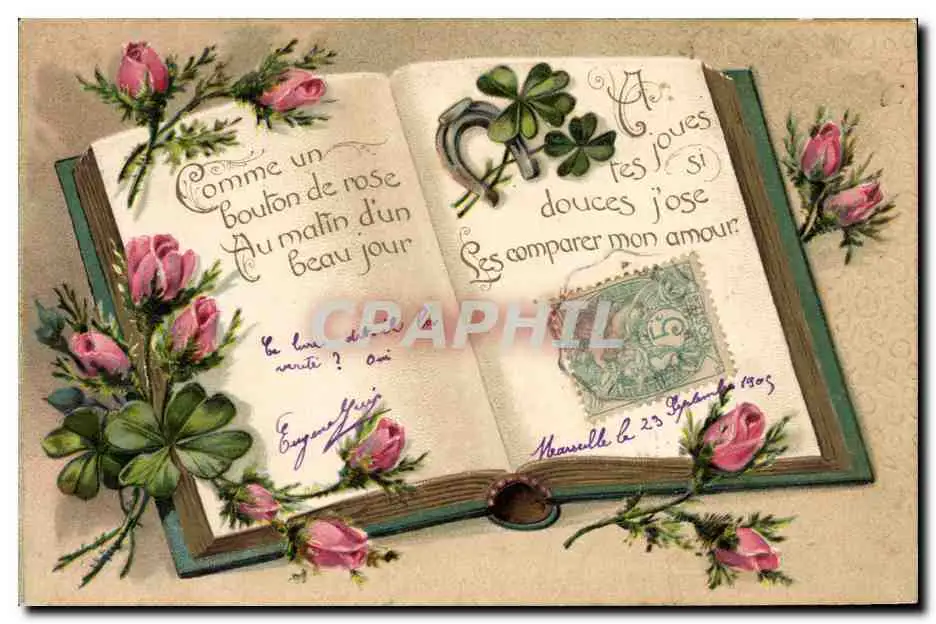 Comme un
bouton de rose
Au matin d'un
beau jour
A
tes joues
si
douces j'ose
Les comparer mon amour.
CPAPHIL
Ce livre dit-il la
vérité ? Oui
Eugene
5
Marseille le 23 Septembre 1905